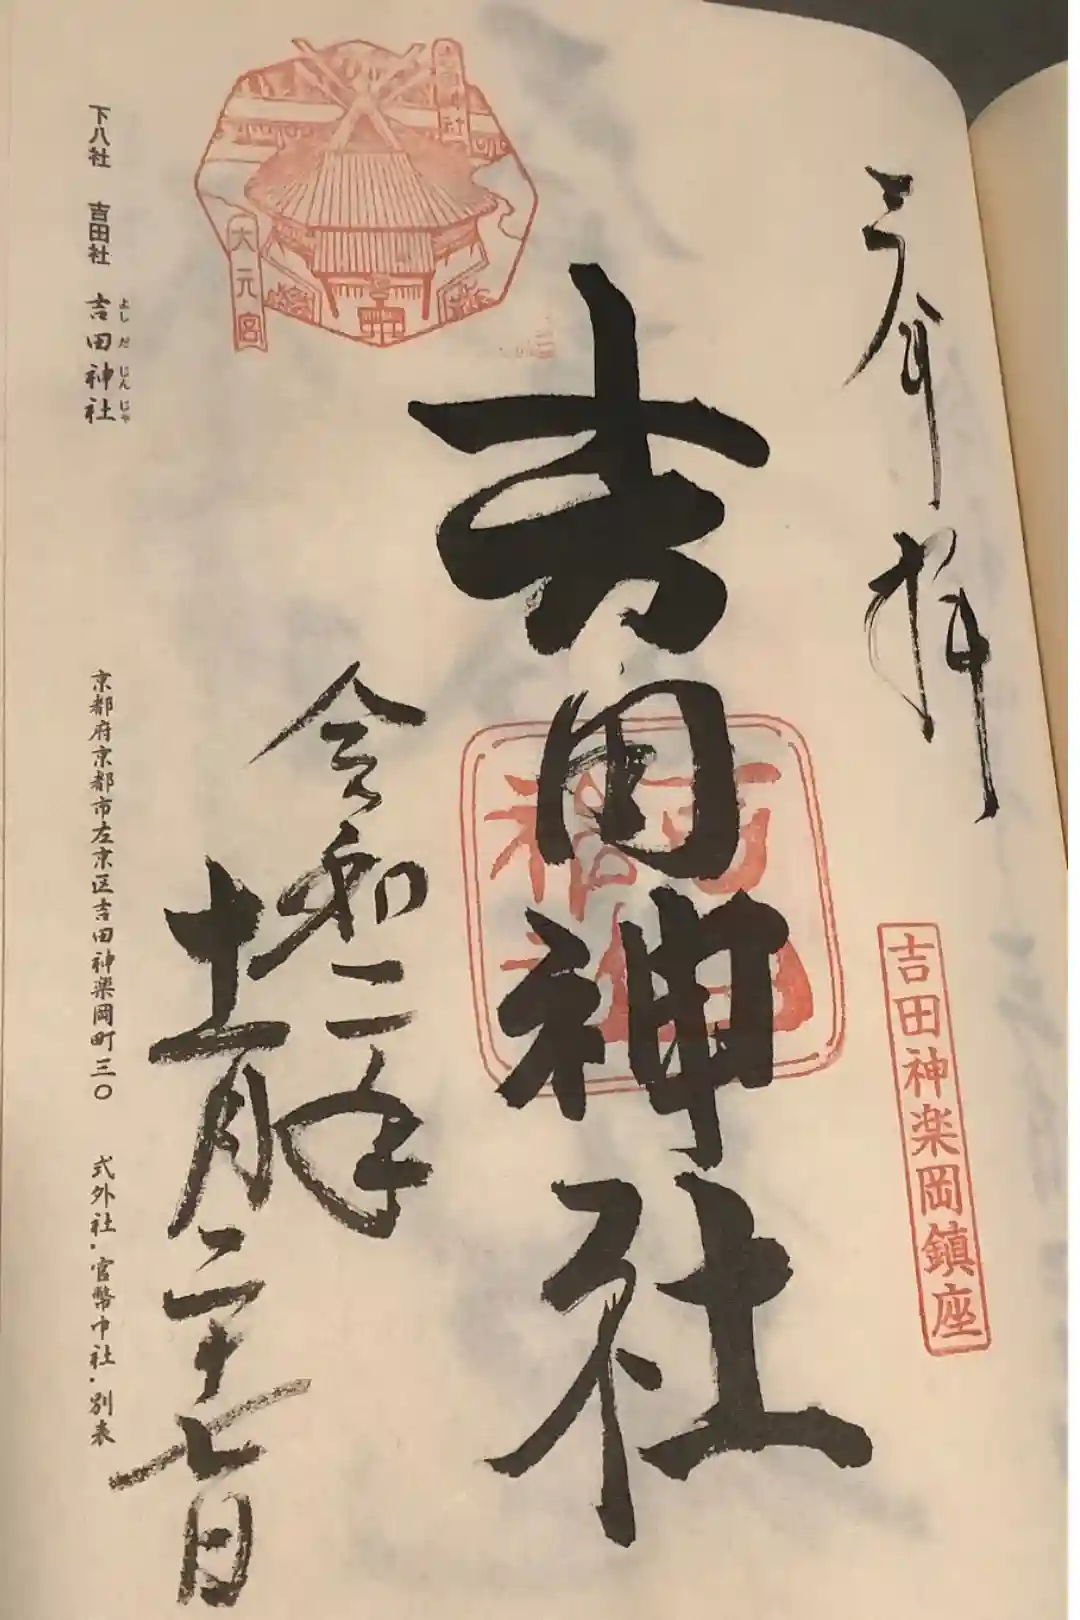 奉拝
吉田神楽岡鎮座
吉田神社
令和二年
十一月二十七日
吉田神社
大元宮
下八社 吉田社 吉田神社
よしだじんじゃ
京都府京都市左京区吉田神楽岡町三〇 式外社・官幣中社・別表